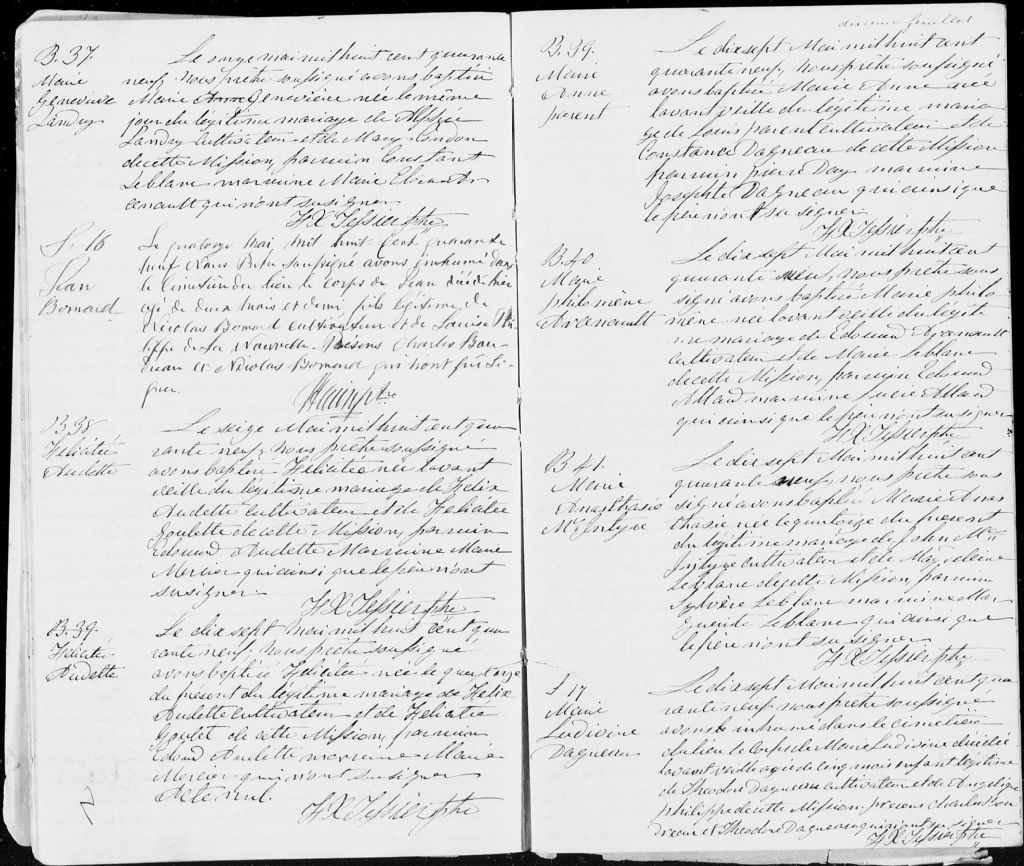 B. 37.
Marie
Genevieve
Landry
Le onze mai mil huit cent quarante
neuf, Nous prêtre soussigné avons baptisé
Marie Anne Genevieve née le même
jour du légitime mariage de
Landry cultivateur et de Mary London
de cette Mission, parrain Constant
Leblanc marraine Marie Ar
cenault qui n'ont su signer.
H X Tessier ptre
S. 16
Jean
Bomard
Le quatorze Mai, mil huit-cent quarante
neuf Nous Prêtre soussigné avons inhumé dans
le Cimetière du lieu le corps de Jean décédé hier
agé de deux mois et demi fils légitime de
Nicolas Bomard cultivateur et de Louise Phi
lippe de la Nouvelle. Présens Charles Bou-
dreau et Nicolas Bomard qui n'ont pu Si-
gner.
ptre
B 38
Félicitée
Audette
Le seize Mai mil huit cent qua
rante neuf, nous prêtre soussigné
avons baptisé Félicitée née l'avant
veille du légitime mariage de Félix
Audette cultivateur et de Féliciatée
Goulette de cette Mission, parrain
Edouard Audette Marraine Marie
Mercier qui ainsi que le père n'ont
su signer.
H X Tessier ptre
B. 39.
Félicitée
Audette
Le dix sept Mai mil huit cent qua
rante neuf, nous prêtre soussigné
avons baptisé Félicitée née le quatorze
du présent du légitime mariage de Félix
Audette cultivateur et de Féliciatée
Goulet de cette Mission, parrain
Edoud Audette marraine Marie
Mercier qui n'ont su signer
Acte nul.
H X Tessier ptre
feuillet
B. 39.
Marie
Anne
parent
Le dix sept Mai mil huit cent
quarante neuf, nous prêtre soussigné
avons baptisé Marie Anne née
l'avant veille du légitime maria
ge de Louis parent cultivateur et de
Constance Dagneau de cette Mission
parrain pierre Day marraine
Josephte Dagneau qui ainsi que
le père n'ont su signer.
H X Tessier ptre
B. 40
Marie
philomène
Arsenault
Le dix sept Mai mil huit cent
quarante neuf, nous prêtre sous
signé avons baptisé Marie philo
mène née l'avant veille du légiti
me mariage de Edouard Arsenault
cultivateur et de Marie Leblanc
de cette Mission, parrain Edouard
Allard marraine Lucie Allard
qui ainsi que le père n'ont su signer
H X Tessier ptre
B 41.
Marie
Anasthasie
Mc Intyre
Le dix sept Mai mil huit cent
quarante neuf, nous prêtre sous
signé avons baptisé Marie Anas
thasie née le quatorze du présent
du légitime mariage de John Mc
Intyre cultivateur et de Magdeleine
Leblanc de cette Mission, parrain
Sylvère Leblanc marraine Mar
guerite Leblanc qui ainsi que
le père n'ont su signer
H X Tessier ptre
S 17
Marie
Ludivine
Dagneau
Le dix sept Mai mil huit cent qua
rante neuf nous prêtre soussigné
avons inhumé dans le cimetière
du lieu le corps de Marie Ludivine décédée
l'avant veille agée de cinq mois enfant légitime
de Theodore Dagneau cultivateur et de Angelique
philippe de cette Mission. présens charles Bou
dreau et Theodore Dagneau qui n'ont su signer
H X Tessier ptre